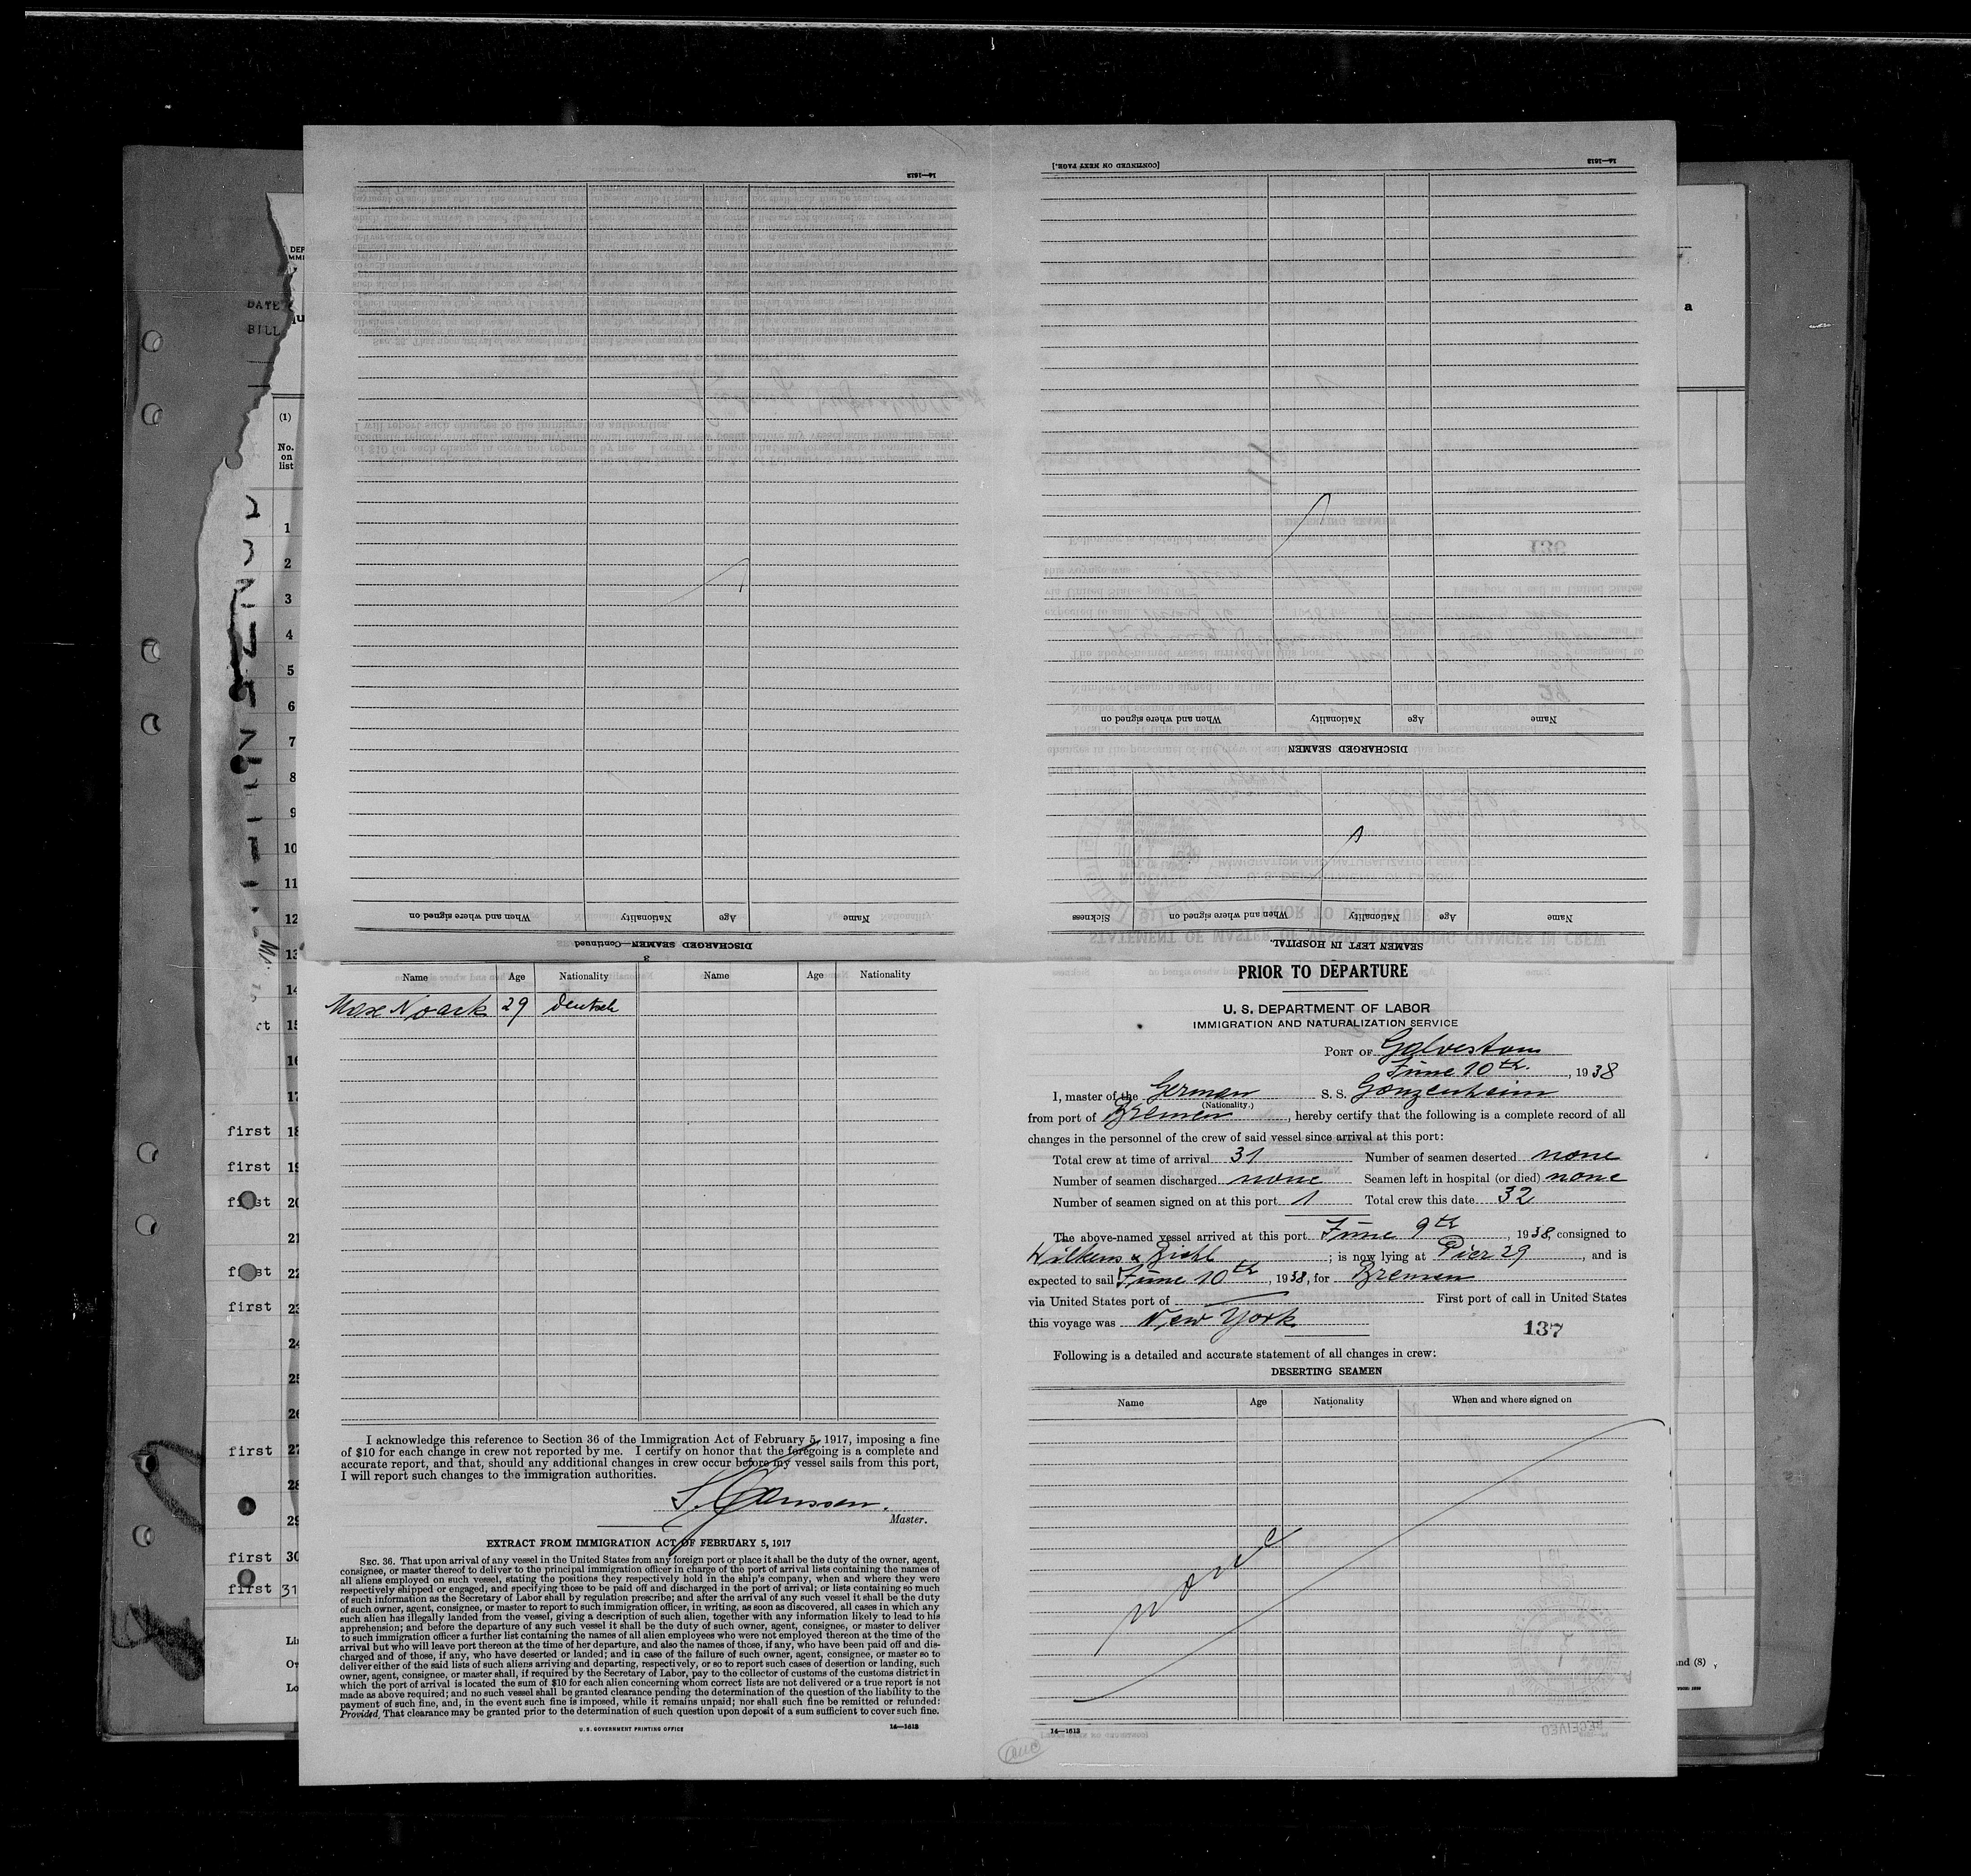 14—1613
[CONTINUED ON NEXT PAGE.]
14—1613
When and where signed on Nationality Age Name
DISCHARGED SEAMEN
Sickness When and where signed on Nationality Age Name
SEAMEN LEFT IN HOSPITAL.
When and where signed on Nationality Age Name
DISCHARGED SEAMEN—Continued
3
DATE
BILL
(1)
No. on list
1
2
3
4
5
6
7
8
9
10
11
12
13
14
15
16
17
first 18
first 19
first 20
21
first 22
first 23
24
25
26
first 27
28
29
first 30
first 31
a
Name Age Nationality Name Age Nationality
Max Noack 29 deutsch
I acknowledge this reference to Section 36 of the Immigration Act of February 5, 1917, imposing a fine
of $10 for each change in crew not reported by me. I certify on honor that the foregoing is a complete and
accurate report, and that, should any additional changes in crew occur before my vessel sails from this port,
I will report such changes to the immigration authorities.
Janssen.
Master.
EXTRACT FROM IMMIGRATION ACT OF FEBRUARY 5, 1917
SEC. 36. That upon arrival of any vessel in the United States from any foreign port or place it shall be the duty of the owner, agent,
consignee, or master thereof to deliver to the principal immigration officer in charge of the port of arrival lists containing the names of
all aliens employed on such vessel, stating the positions they respectively hold in the ship's company, when and where they were
respectively shipped or engaged, and specifying those to be paid off and discharged in the port of arrival; or lists containing so much
of such information as the Secretary of Labor shall by regulation prescribe; and after the arrival of any such vessel it shall be the duty
of such owner, agent, consignee, or master to report to such immigration officer, in writing, as soon as discovered, all cases in which any
such alien has illegally landed from the vessel, giving a description of such alien, together with any information likely to lead to his
apprehension; and before the departure of any such vessel it shall be the duty of such owner, agent, consignee, or master to deliver
to such immigration officer a further list containing the names of all alien employees who were not employed thereon at the time of the
arrival but who will leave port thereon at the time of her departure, and also the names of those, if any, who have been paid off and dis-
charged and of those, if any, who have deserted or landed; and in case of the failure of such owner, agent, consignee, or master so to
deliver either of the said lists of such aliens arriving and departing, respectively, or so to report such cases of desertion or landing, such
owner, agent, consignee, or master shall, if required by the Secretary of Labor, pay to the collector of customs of the customs district in
which the port of arrival is located the sum of $10 for each alien concerning whom correct lists are not delivered or a true report is not
made as above required; and no such vessel shall be granted clearance pending the determination of the question of the liability to the
payment of such fine, and, in the event such fine is imposed, while it remains unpaid; nor shall such fine be remitted or refunded:
Provided, That clearance may be granted prior to the determination of such question upon deposit of a sum sufficient to cover such fine.
U. S. GOVERNMENT PRINTING OFFICE 14—1613
PRIOR TO DEPARTURE
U. S. DEPARTMENT OF LABOR
IMMIGRATION AND NATURALIZATION SERVICE
PORT OF Galveston
June 10th., 1938
I, master of the German S. S. Gonzenheim
(Nationality.)
from port of Bremen, hereby certify that the following is a complete record of all
changes in the personnel of the crew of said vessel since arrival at this port:
Total crew at time of arrival 31 Number of seamen deserted none
Number of seamen discharged none Seamen left in hospital (or died) none
Number of seamen signed on at this port 1 Total crew this date 32
The above-named vessel arrived at this port June 9th, 1938, consigned to
Wilkens & Biehl; is now lying at Pier 29, and is
expected to sail June 10th, 1938, for Bremen
via United States port of First port of call in United States
this voyage was New York
137
Following is a detailed and accurate statement of all changes in crew:
DESERTING SEAMEN
Name Age Nationality When and where signed on
none
14—1613